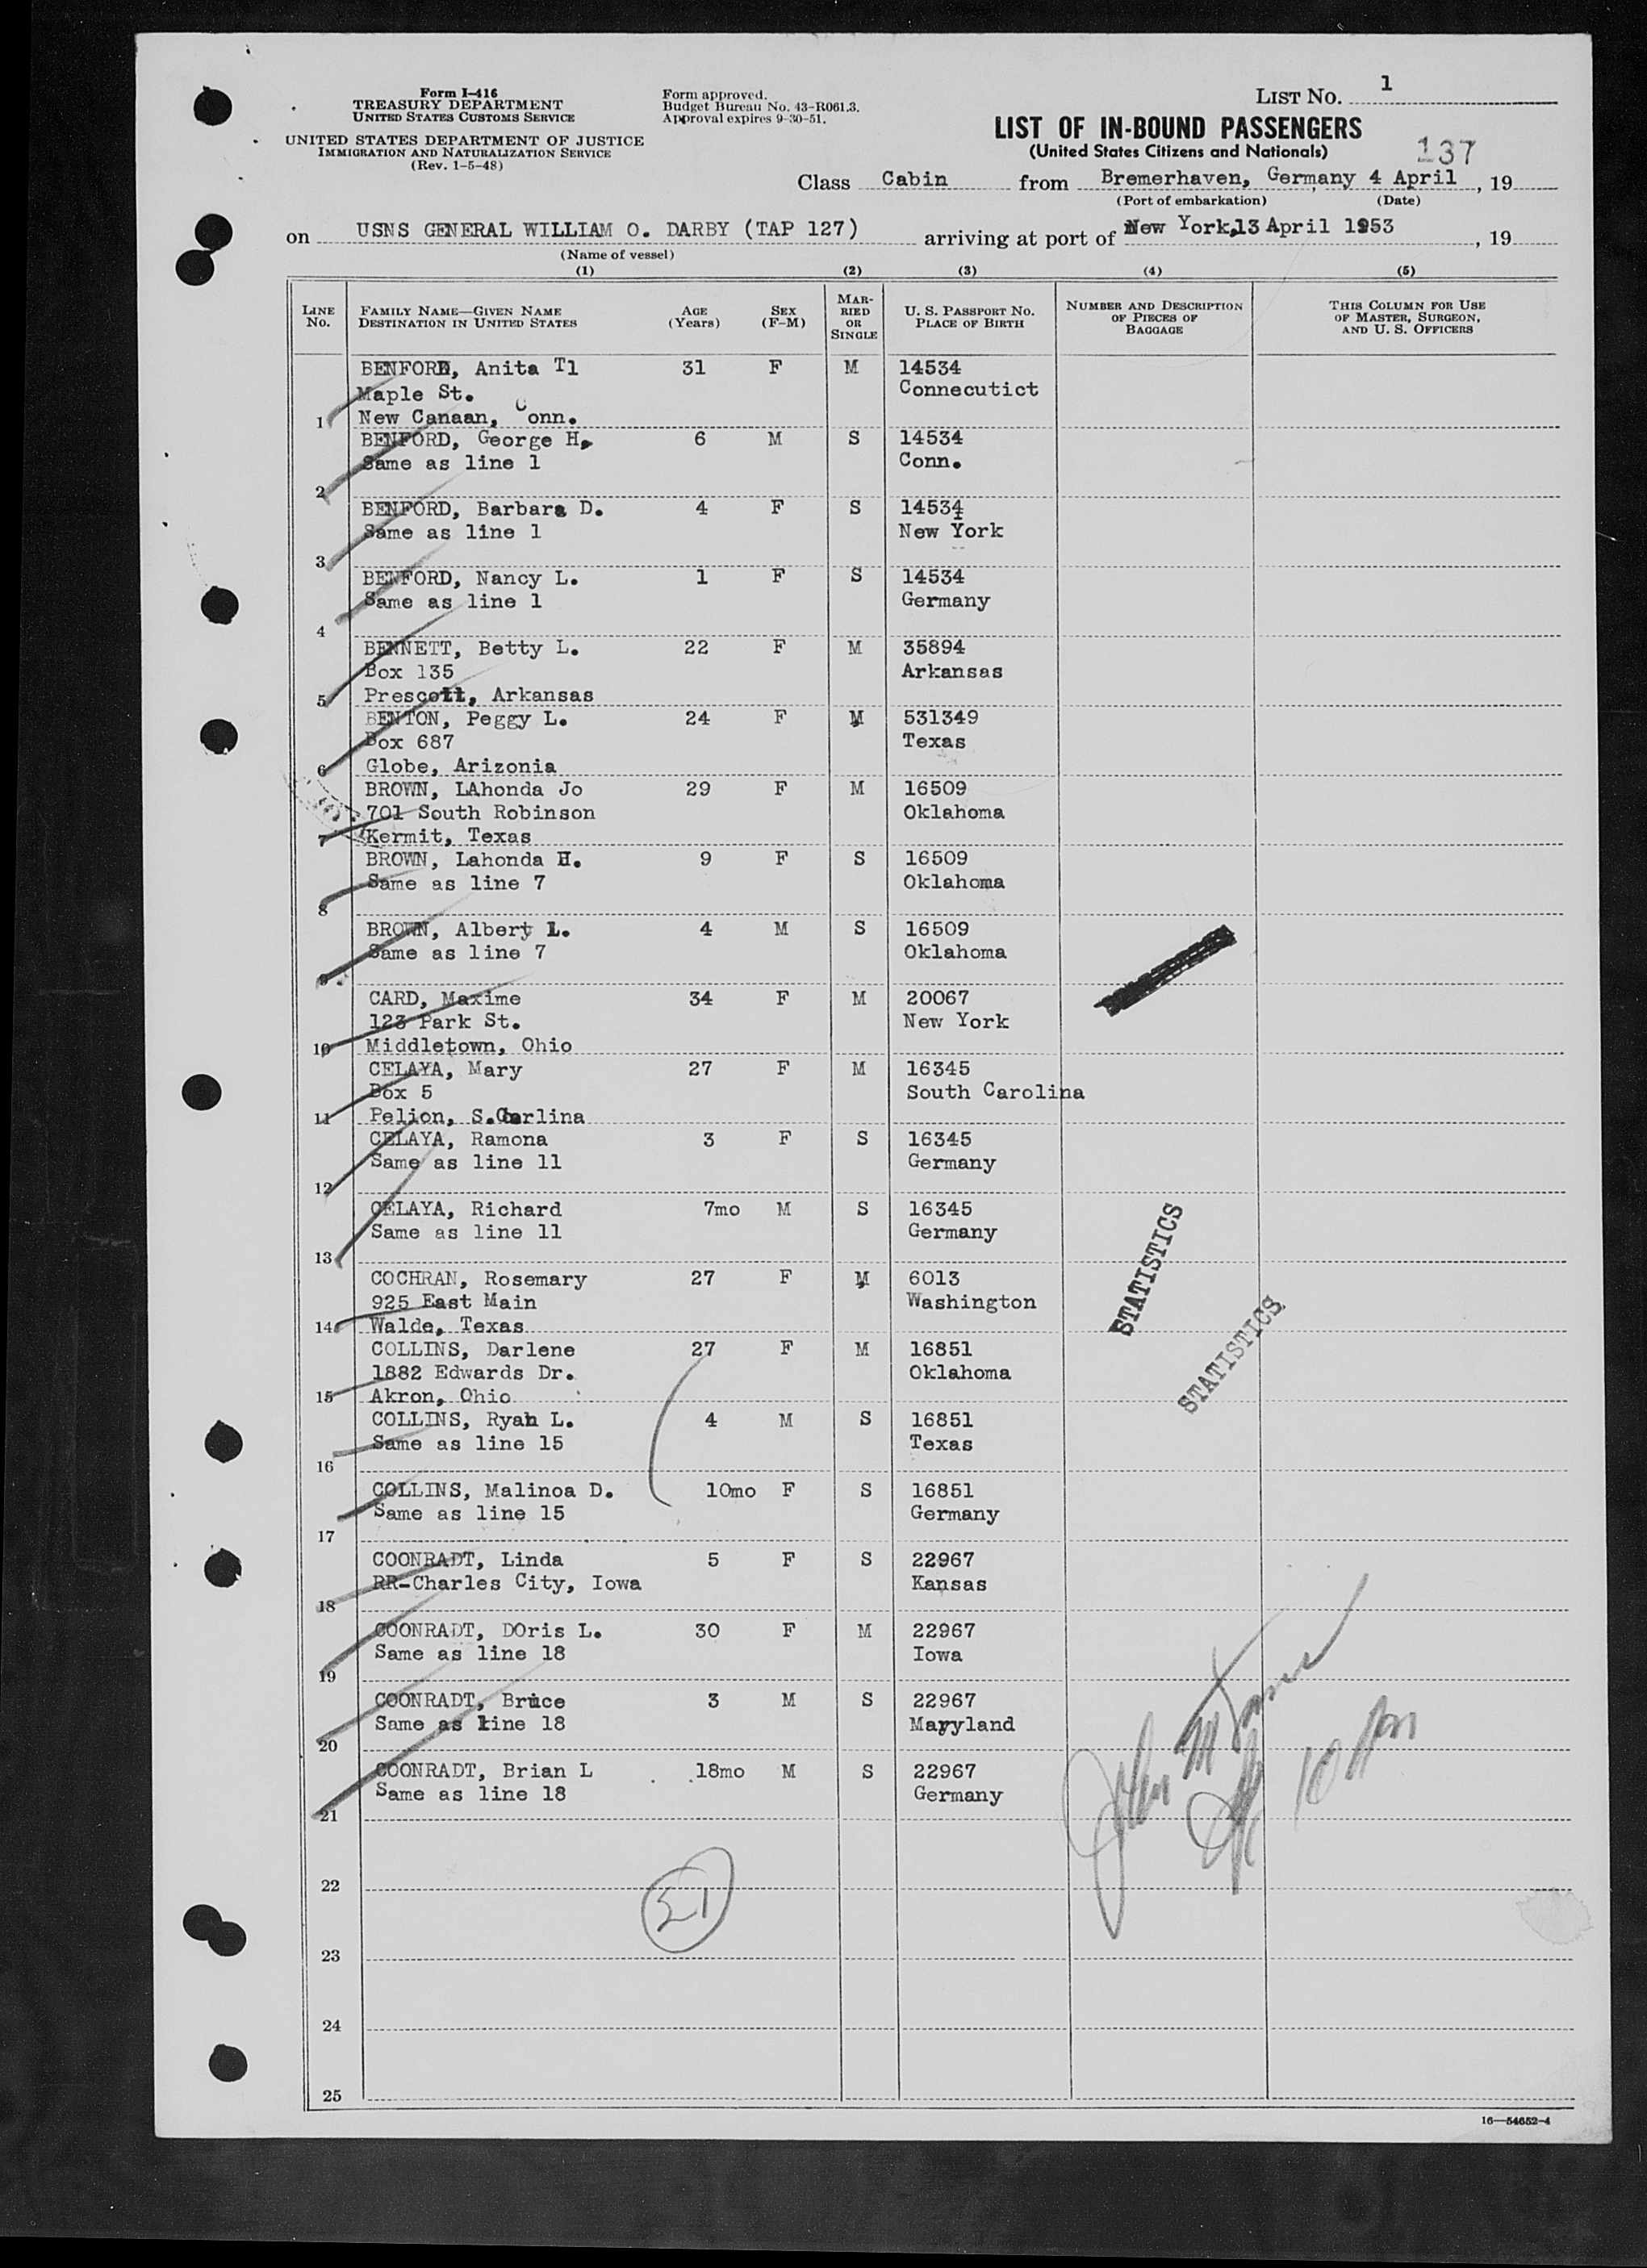 Form I-416
TREASURY DEPARTMENT
UNITED STATES CUSTOMS SERVICE
UNITED STATES DEPARTMENT OF JUSTICE
IMMIGRATION AND NATURALIZATION SERVICE
(Rev. 1-5-48)
Form approved.
Budget Bureau No. 43-R061.3.
Approval expires 9-30-51.
LIST NO. 1
LIST OF IN-BOUND PASSENGERS
(United States Citizens and Nationals)
137
Class Cabin from Bremerhaven, Germany 4 April, 19
(Port of embarkation) (Date)
on USNS GENERAL WILLIAM O. DARBY (TAP 127) arriving at port of New York, 13 April 1953, 19
(Name of vessel)
(1) (2) (3) (4) (5)
LINE No. FAMILY NAME—GIVEN NAME DESTINATION IN UNITED STATES AGE (Years) SEX (F-M) MARRIED OR SINGLE U. S. PASSPORT NO. PLACE OF BIRTH NUMBER AND DESCRIPTION OF PIECES OF BAGGAGE THIS COLUMN FOR USE OF MASTER, SURGEON, AND U. S. OFFICERS
BENFORD, Anita Tl 31 F M 14534
Maple St. Connecutict
1 New Canaan, Conn.
BENFORD, George H. 6 M S 14534
Same as line 1 Conn.
2
BENFORD, Barbara D. 4 F S 14534
Same as line 1 New York
3
BENFORD, Nancy L. 1 F S 14534
Same as line 1 Germany
4
BENNETT, Betty L. 22 F M 35894
Box 135 Arkansas
5 Prescott, Arkansas
BENTON, Peggy L. 24 F M 531349
Box 687 Texas
6 Globe, Arizonia
BROWN, LAhonda Jo 29 F M 16509
701 South Robinson Oklahoma
7 Kermit, Texas
BROWN, Lahonda H. 9 F S 16509
Same as line 7 Oklahoma
8
BROWN, Albert L. 4 M S 16509
Same as line 7 Oklahoma
9
CARD, Maxime 34 F M 20067
123 Park St. New York
10 Middletown, Ohio
CELAYA, Mary 27 F M 16345
Box 5 South Carolina
11 Pelion, S.Carlina
CELAYA, Ramona 3 F S 16345
Same as line 11 Germany
12
CELAYA, Richard 7mo M S 16345
Same as line 11 Germany
13
COCHRAN, Rosemary 27 F M 6013
925 East Main Washington
14 Walde, Texas
COLLINS, Darlene 27 F M 16851
1882 Edwards Dr. Oklahoma
15 Akron, Ohio
COLLINS, Ryan L. 4 M S 16851
Same as line 15 Texas
16
COLLINS, Malinoa D. 10mo F S 16851
Same as line 15 Germany
17
COONRADT, Linda 5 F S 22967
RR-Charles City, Iowa Kansas
18
COONRADT, DOris L. 30 F M 22967
Same as line 18 Iowa
19
COONRADT, Bruce 3 M S 22967
Same as line 18 Maryland
20
COONRADT, Brian L 18mo M S 22967
Same as line 18 Germany
21
STATISTICS
STATISTICS
John M
22
21
23
24
25
16—54652-4